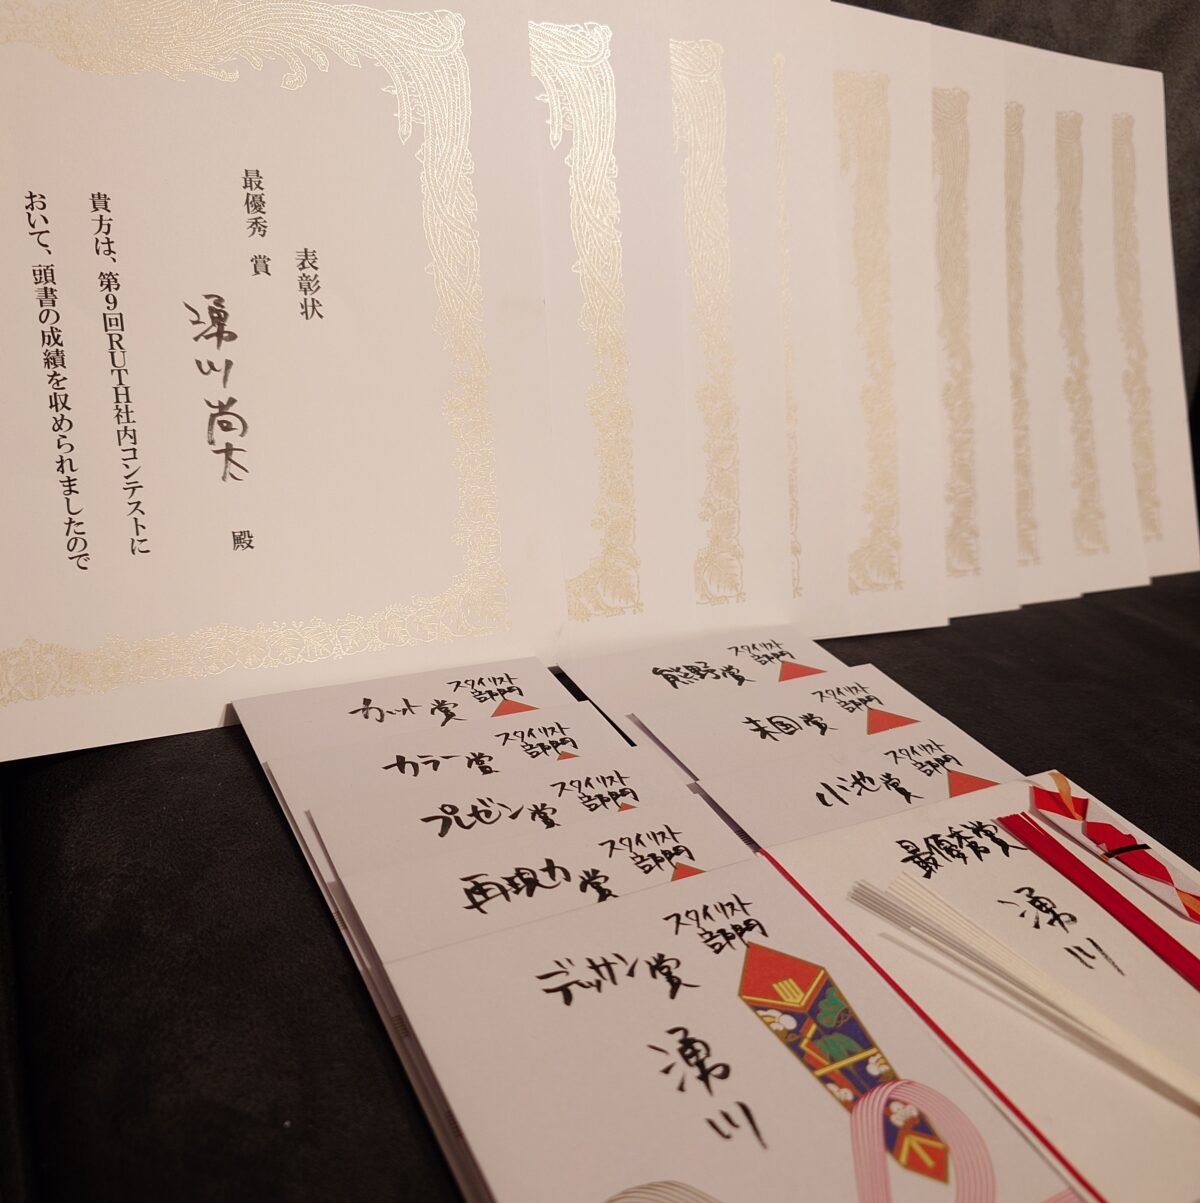 表彰状
最優秀 賞
湧川 尚太 殿
貴方は、第9回RUTH社内コンテストに
おいて、頭書の成績を収められましたので
スタイリスト
部門
カット賞
スタイリスト
部門
カラー賞
スタイリスト
部門
プレゼン賞
スタイリスト
部門
再現力賞
スタイリスト
部門
デッサン賞
湧川
スタイリスト
部門
熊野賞
スタイリスト
部門
末国賞
スタイリスト
部門
小池賞
最優秀賞
湧川